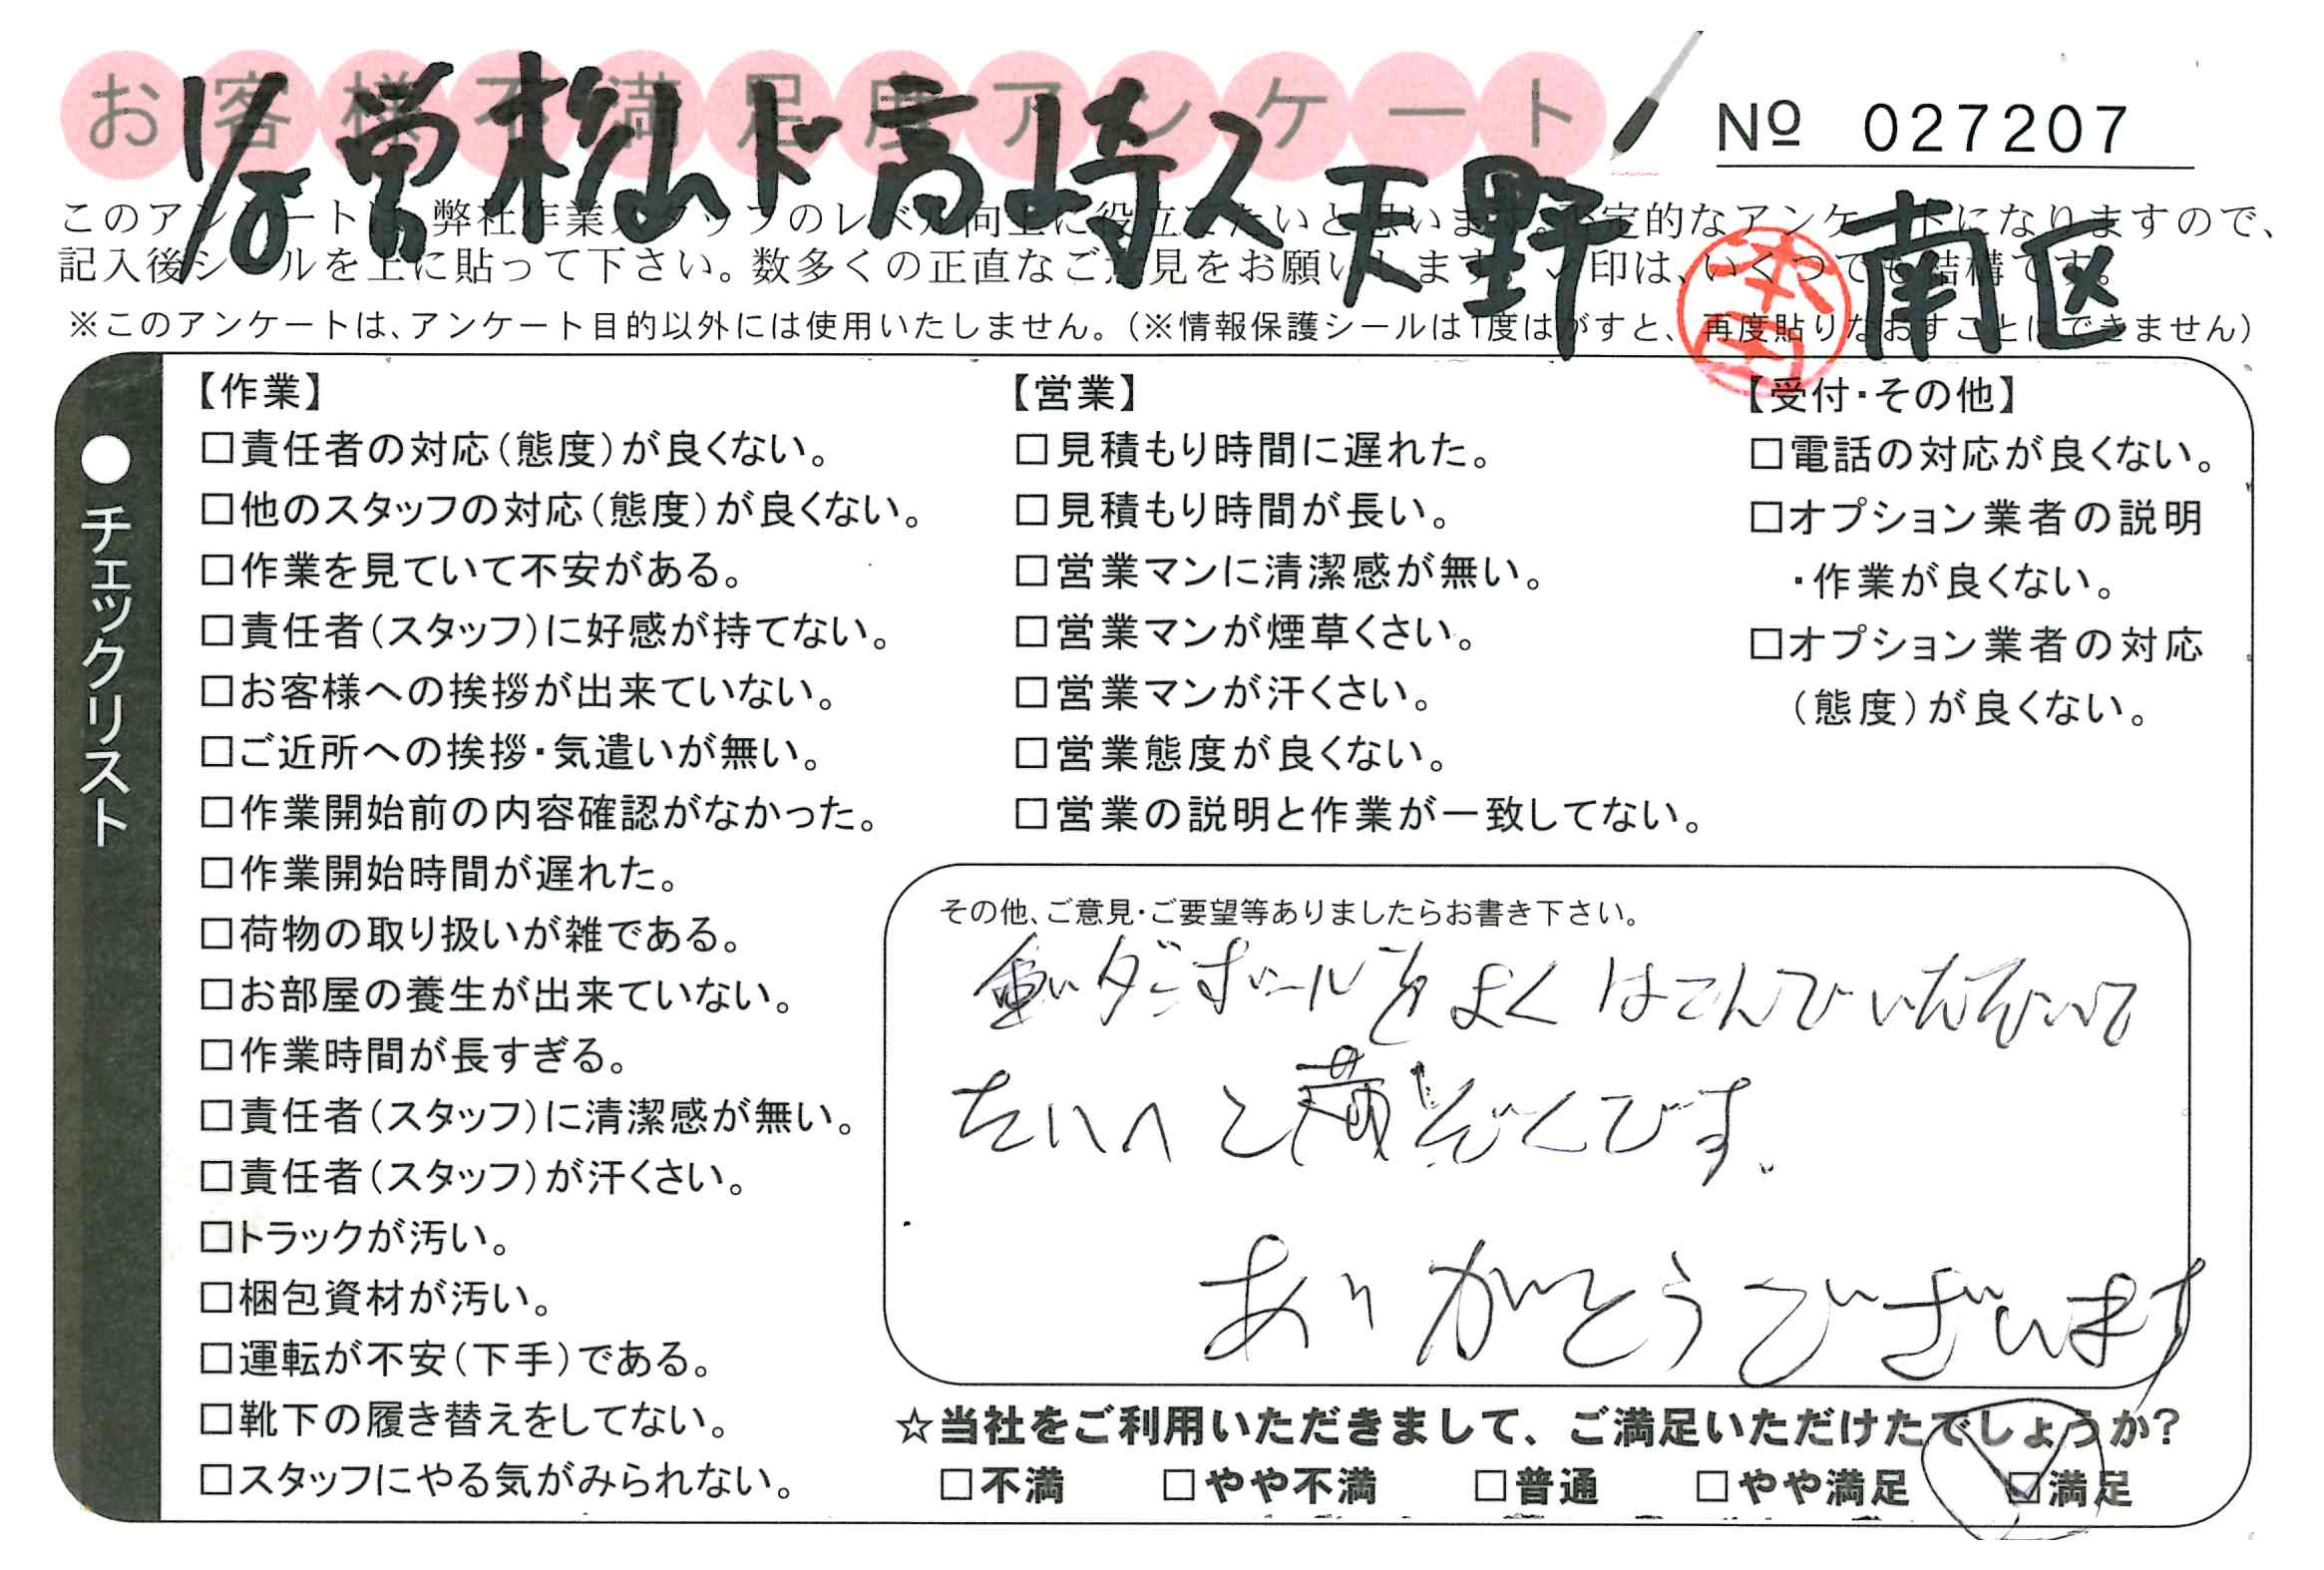 お客様不満足度アンケート
№ 027207
1/8 営松山ド高崎ス天野 南区
このアンケートは、弊社作業スタッフのレベル向上に役立てたいと思います。否定的なアンケートになりますので、
記入後シールを上に貼って下さい。数多くの正直なご意見をお願いします。✓印は、いくつでも結構です。
※このアンケートは、アンケート目的以外には使用いたしません。(※情報保護シールは1度はがすと、再度貼りなおすことはできません)
●チェックリスト
【作業】
□責任者の対応(態度)が良くない。
□他のスタッフの対応(態度)が良くない。
□作業を見ていて不安がある。
□責任者(スタッフ)に好感が持てない。
□お客様への挨拶が出来ていない。
□ご近所への挨拶・気遣いが無い。
□作業開始前の内容確認がなかった。
□作業開始時間が遅れた。
□荷物の取り扱いが雑である。
□お部屋の養生が出来ていない。
□作業時間が長すぎる。
□責任者(スタッフ)に清潔感が無い。
□責任者(スタッフ)が汗くさい。
□トラックが汚い。
□梱包資材が汚い。
□運転が不安(下手)である。
□靴下の履き替えをしてない。
□スタッフにやる気がみられない。
【営業】
□見積もり時間に遅れた。
□見積もり時間が長い。
□営業マンに清潔感が無い。
□営業マンが煙草くさい。
□営業マンが汗くさい。
□営業態度が良くない。
□営業の説明と作業が一致してない。
【受付・その他】
□電話の対応が良くない。
□オプション業者の説明
・作業が良くない。
□オプション業者の対応
(態度)が良くない。
その他、ご意見・ご要望等ありましたらお書き下さい。
重いダンボールをよくはこんでいただいて
たいへん満ぞくです。
ありがとうございます
☆当社をご利用いただきまして、ご満足いただけたでしょうか?
□不満 □やや不満 □普通 □やや満足 ☑満足